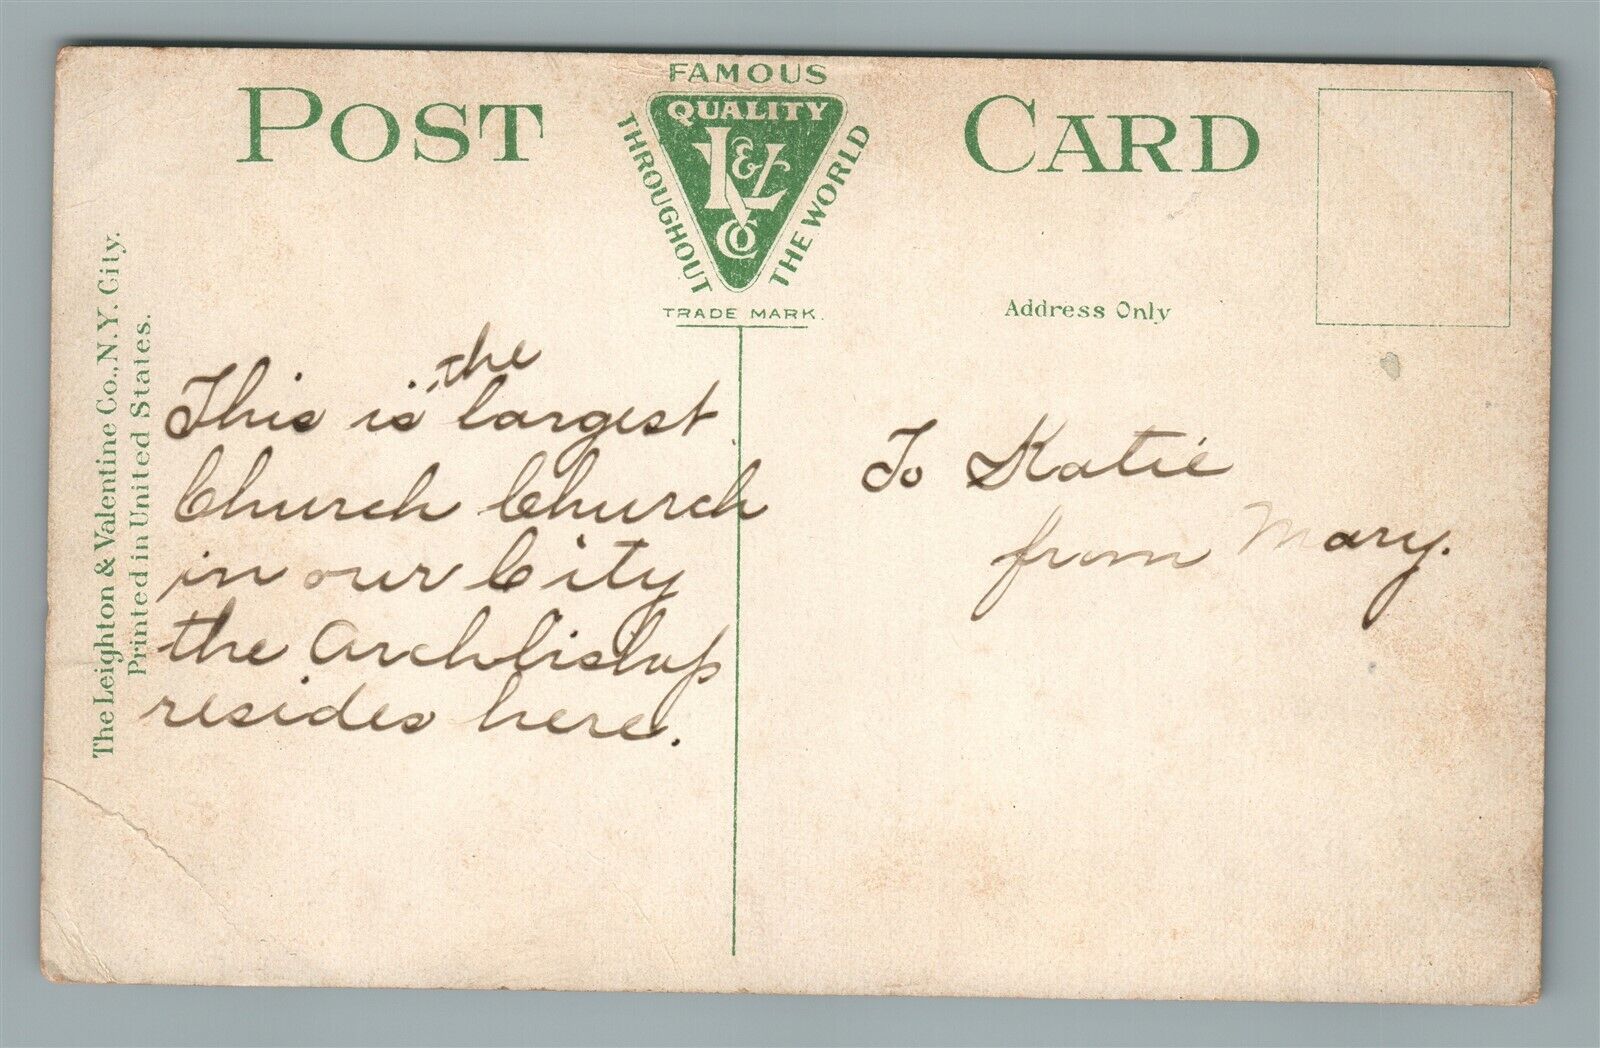 POST CARD
FAMOUS
QUALITY
L & V
Co
THROUGHOUT
THE WORLD
TRADE MARK.
Address Only
The Leighton & Valentine Co., N.Y. City.
Printed in United States.
This is the largest
Church Church
in our City
the Archbishop
resides here.
To Katie
from Mary.